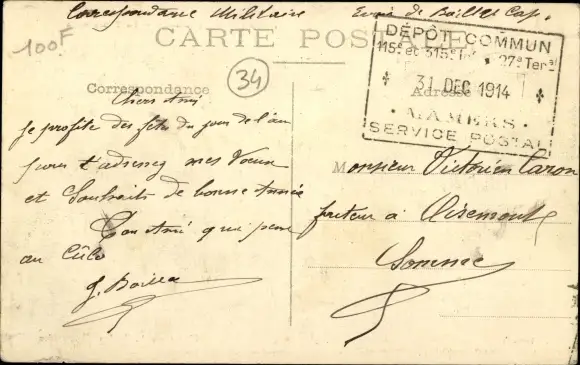 Correspondance Militaire
Envoi de
CARTE POSTALE
100F
34
DÉPÔT COMMUN
115e et 315e 27e Teral
31 DEC 1914
MAMERS
SERVICE POSTAL
Correspondance
Adresse
Cher Ami
Je profite des fêtes du jour de l'an
pour t'adresser mes Voeux
et Souhaits de bonne Année
Ton Ami qui pense
au
Monsieur Victorien Caron
facteur à Oisemont
Somme